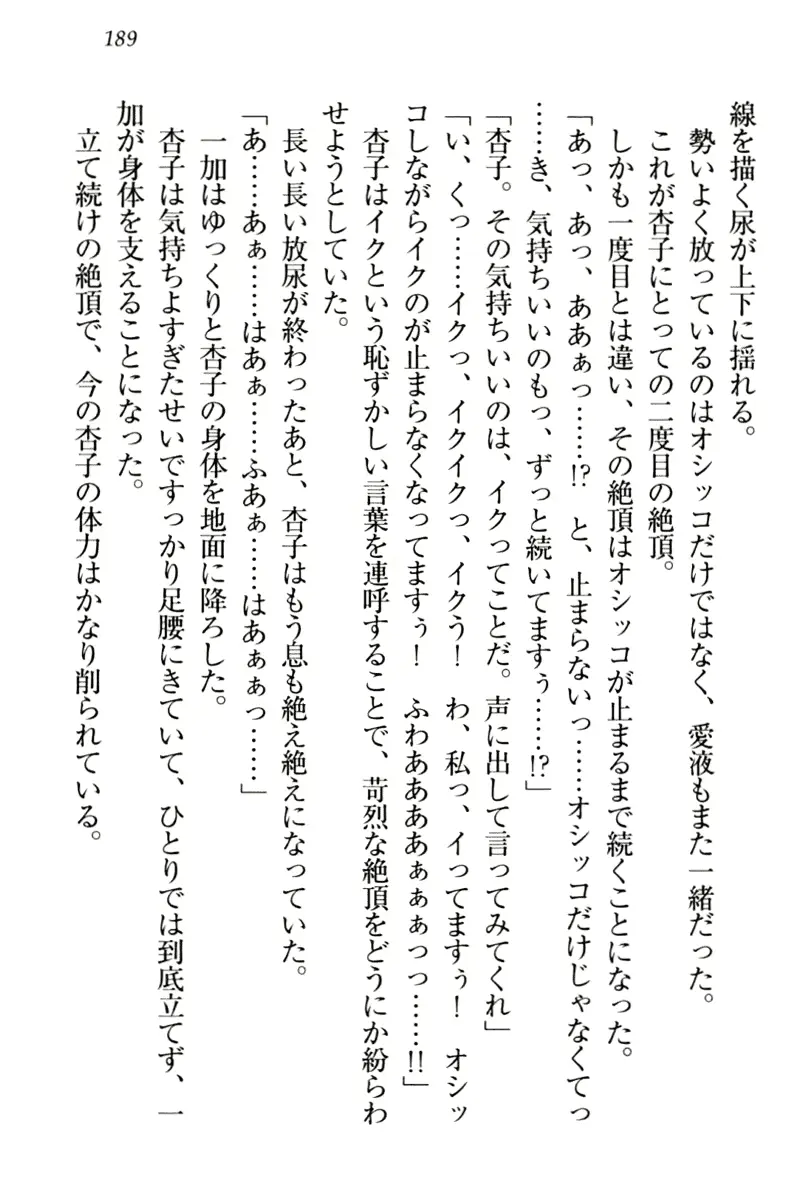 189
線を描く尿が上下に揺れる。
勢いよく放っているのはオシッコだけではなく、愛液もまた一緒だった。
これが杏子にとっての二度目の絶頂。
しかも一度目とは違い、その絶頂はオシッコが止まるまで続くことになった。
「あっ、あっ、ああぁっ……!?　と、止まらないっ……オシッコだけじゃなくてっ
……き、気持ちいいのもっ、ずっと続いてますぅ……!?」
「杏子。その気持ちいいのは、イクってことだ。声に出して言ってみてくれ」
「い、くっ……イクっ、イクイクっ、イクう！　わ、私っ、イってますぅ！　オシッ
コしながらイクのが止まらなくなってますぅ！　ふわあああぁぁぁっっ……!!」
杏子はイクという恥ずかしい言葉を連呼することで、苛烈な絶頂をどうにか紛らわ
せようとしていた。
長い長い放尿が終わったあと、杏子はもう息も絶え絶えになっていた。
「あ……あぁ……はあぁ……ふあぁ……はあぁぁっ……」
一加はゆっくりと杏子の身体を地面に降ろした。
杏子は気持ちよすぎたせいですっかり足腰にきていて、ひとりでは到底立てず、一
加が身体を支えることになった。
立て続けの絶頂で、今の杏子の体力はかなり削られている。